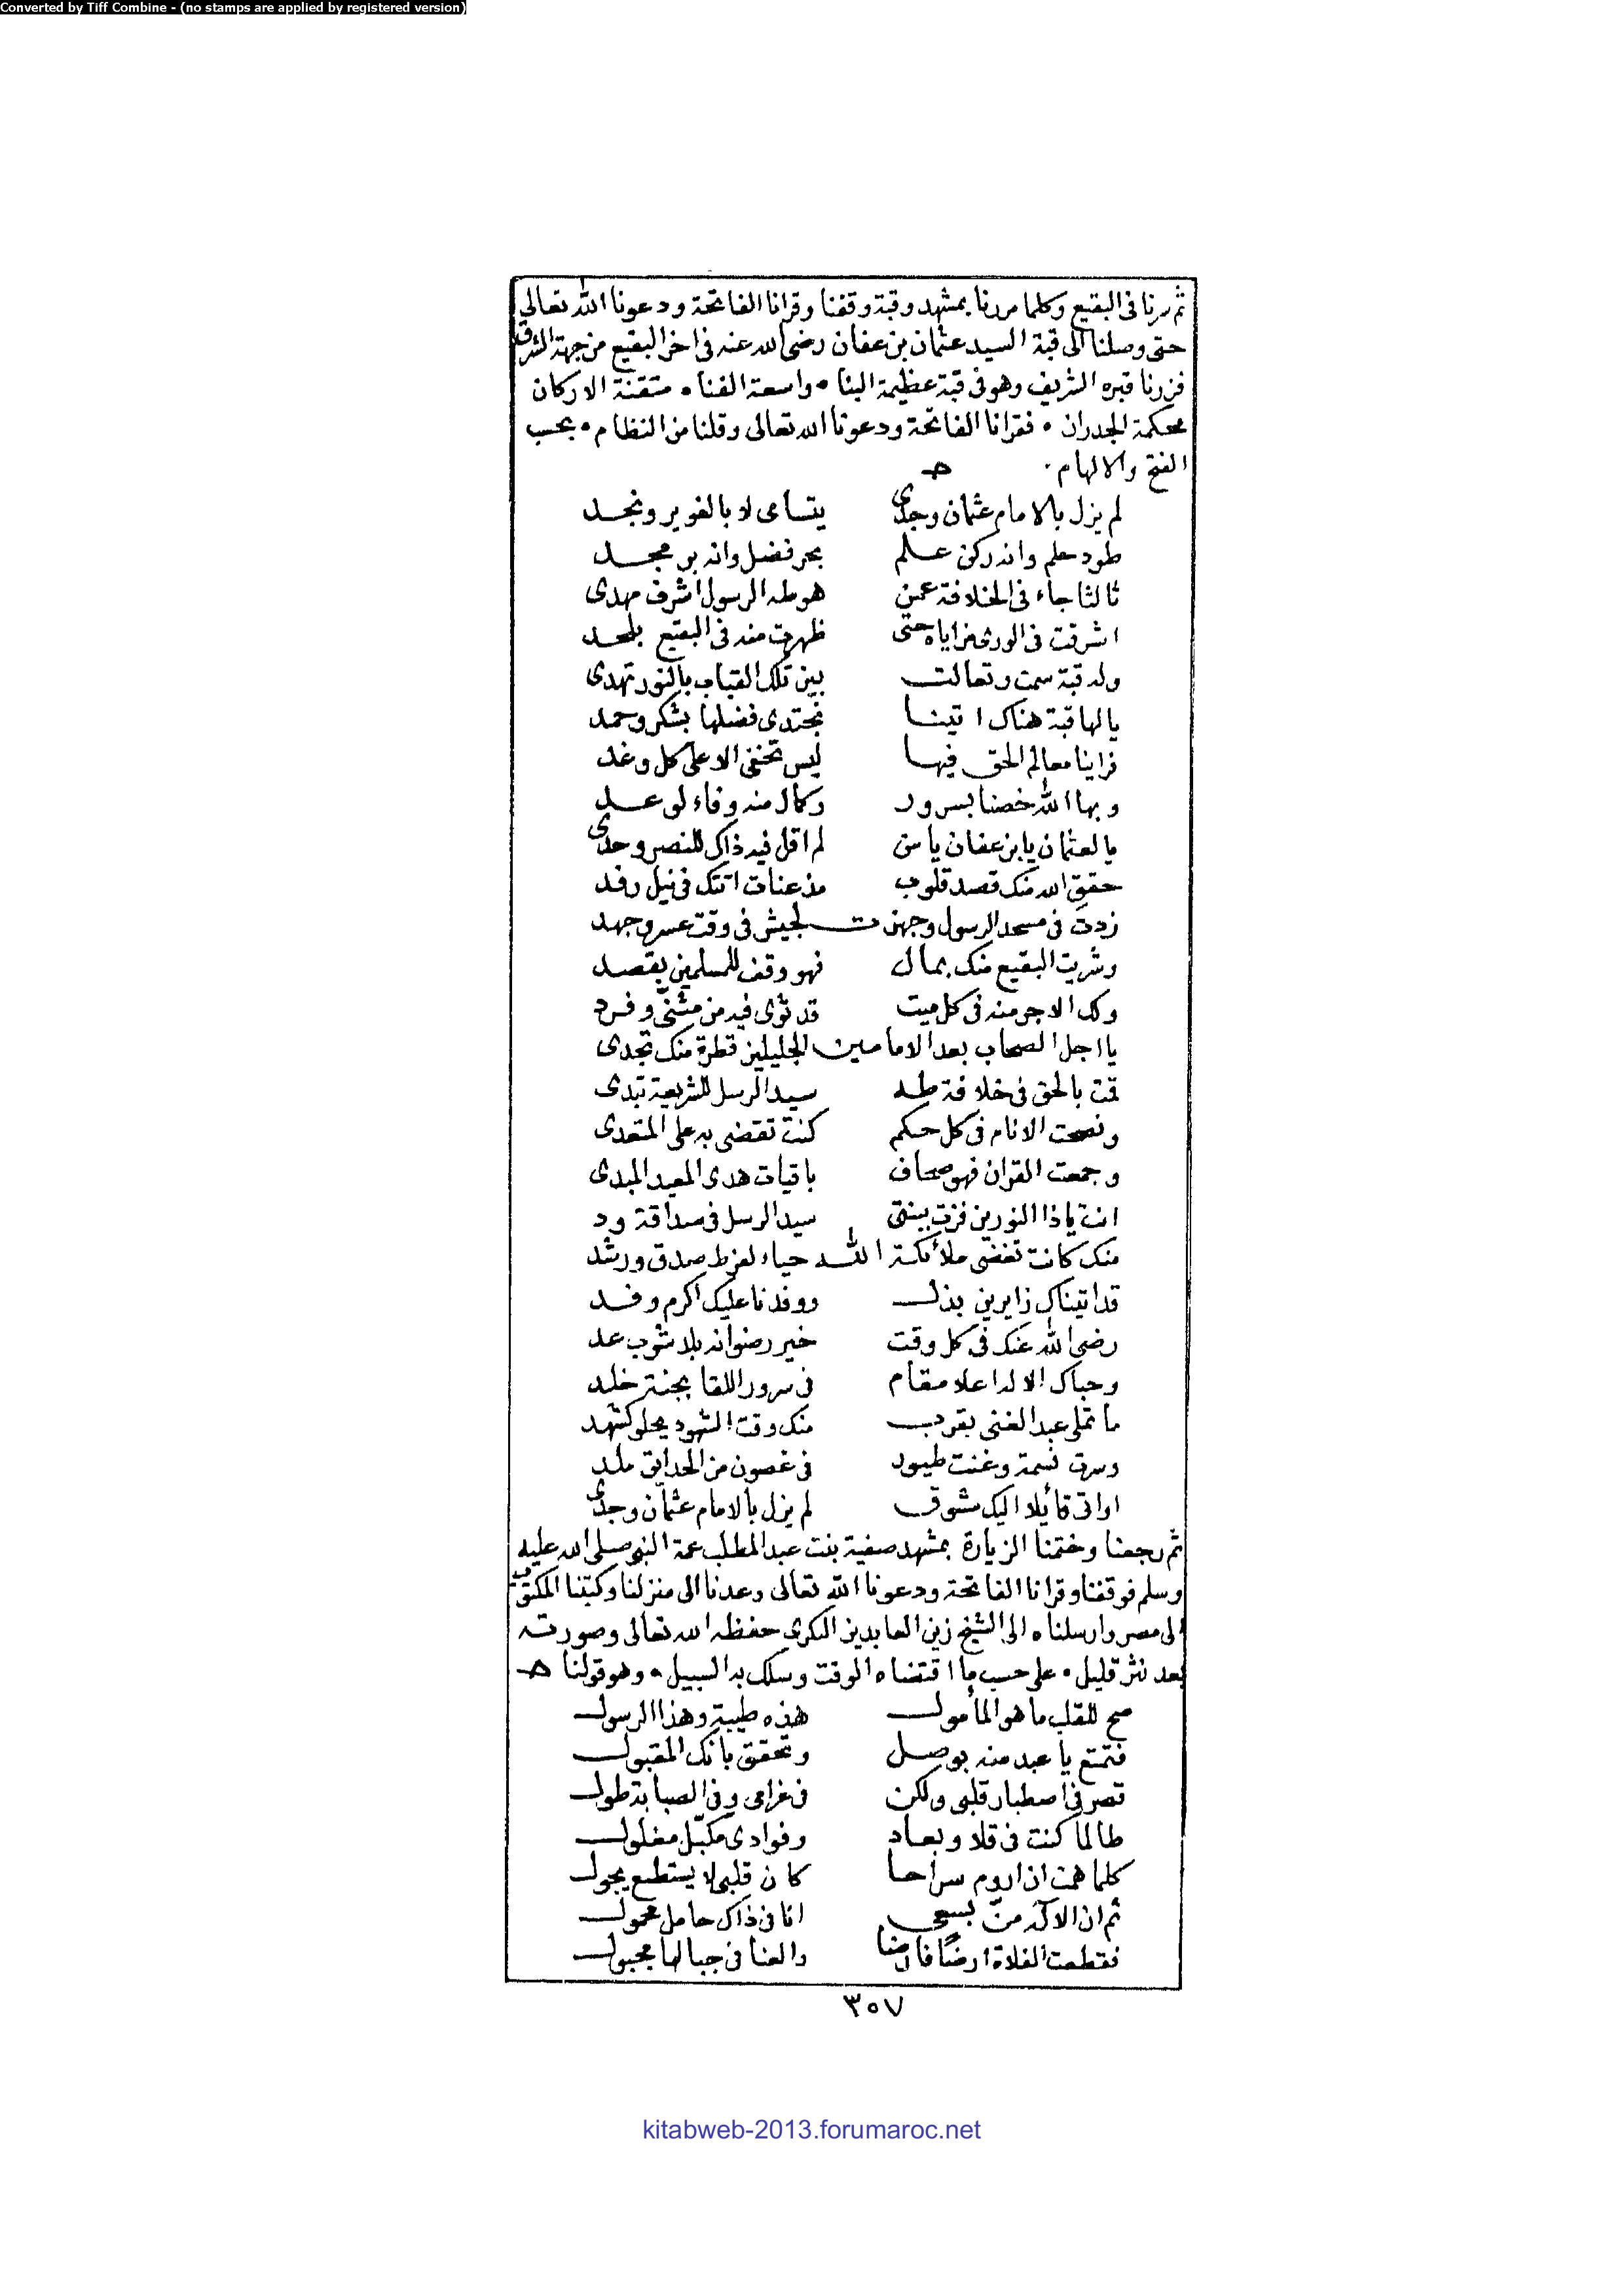 Converted by Tiff Combine - (no stamps are applied by registered version)
ثم سرنا فى البقيع وكلما مررنا بمشهد وقبة وقفنا وقرانا الفاتحة ودعونا الله تعالى
حتى وصلنا الى قبة السيد عثمان بن عفان رضى الله عنه فى اخر البقيع من جهة الشرق
فزرنا قبره الشريف وهو فى قبة عظيمة البنا • واسعة الفنا • متقنة الاركان
محكمة الجدران • فقرانا الفاتحة ودعونا الله تعالى وقلنا من النظام • بحسب
الفتح والالهام •
لم يزل بالامام عثمان وجدى يتسامى لا بالغوير ونجد
طود حلم وانه ركن علم بحر فضل وانه بر مجد
ثالثا جاء فى الخلافة عمن هو طه الرسول اشرف مهدى
اشرقت فى الورى مزاياه حتى ظهرت منه فى البقيع بلحد
وله قبة سمت وتعالت بين تلك القباب بالنور تهدى
يالها قبة هناك اتينا نجتدى فضلها بشكر وحمد
فراينا معالم الحق فيها ليس تخفى الا على كل وغد
وبها الله خصنا بسرور وكمال منه وفاء لوعد
يا لعثمان يا بن عفان يا من لم اقل فيه ذاك للنصر وحدى
حقق الله منك قصد قلوب مذعنات اتتك فى نيل رفد
زدت فى مسجد الرسول وجهزت لجيش فى وقت عسر وجهد
وشريت البقيع منك بمال فهو وقف للمسلمين بقصد
ولك الاجر منه فى كل ميت قد ثوى فيه من مثنى وفرد
يا اجل الصحاب بعد الامامين الجليلين قطرة منك تجدى
قمت بالحق فى خلافة طه سيد الرسل للشريعة تبدى
ونصحت الانام فى كل حكم كنت تقضى به على المتعدى
وجمعت القران فهو صحاف باقيات هدى المعيد المبدى
انت ياذا النورين فزت ببنتى سيد الرسل فى صداقة ود
منك كانت تغضى ملائكة الله حياء لفرط صدق ورشد
قد اتيناك زايرين بذل ووفدنا عليك اكرم وفد
رضى الله عنك فى كل وقت خير رضوانه بلا شوب عد
وحباك الاله اعلا مقام فى سرور اللقا بجنة خلد
ما تملى عبد الغنى بقرب منك وقت الشهود يحلو كشهد
وسرت نسمة وغنت طيور فى غصون من الحدايق ملد
او اتى قائلا اليك مشوق لم يزل بالامام عثمان وجدى
ثم رجعنا وختمنا الزيارة بمشهد صفية بنت عبد المطلب عمة النبى صلى الله عليه
وسلم فوقفنا وقرانا الفاتحة ودعونا الله تعالى وعدنا الى منزلنا وكتبنا المكتوب
الى مصر وارسلناه الى الشيخ زين العابدين البكرى حفظه الله تعالى وصورته
بعد نثر قليل • على حسب ما اقتضاه الوقت وسلك به السبيل • وهو قولنا
صح للقلب ما هو المأمول هذه طيبة وهذا الرسول
فتمتع يا عبد منه بوصل وتحقق بانك المقبول
قصر فى اصطبار قلبى ولكن فى غرامى وفى الصبابة طول
طالما كنت فى قلا وبعاد وفوادى مكبّل مغلول
كلما همت ان اروم سراحا كان قلبى لا يستطيع يجول
ثم ان الاله منّ بسعى انا فى ذاك حامل محمول
فقطعت الفلاة ارضًا فارضا والعنا فى جبالها مجبول
٣٥٧
kitabweb-2013.forumaroc.net